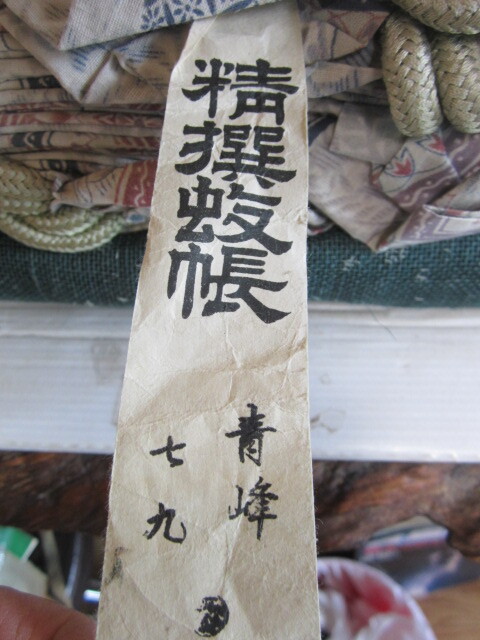 精撰蚊帳
青峰
七九